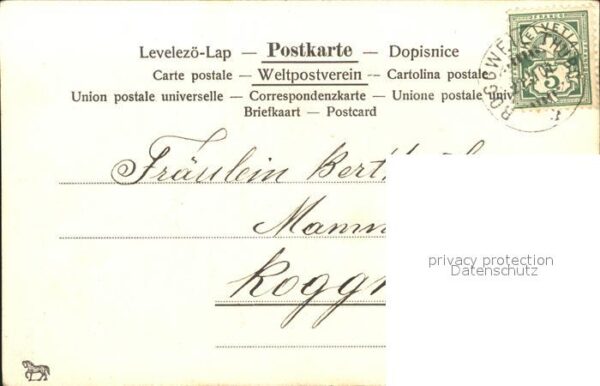 Levelezö-Lap — Postkarte — Dopisnice
Carte postale — Weltpostverein — Cartolina postale
Union postale universelle — Correspondenzkarte — Unione postale univ
Briefkaart — Postcard
HELVETIA
FRANCO
5
Fräulein Bert
Mamm
Rogg
privacy protection
Datenschutz